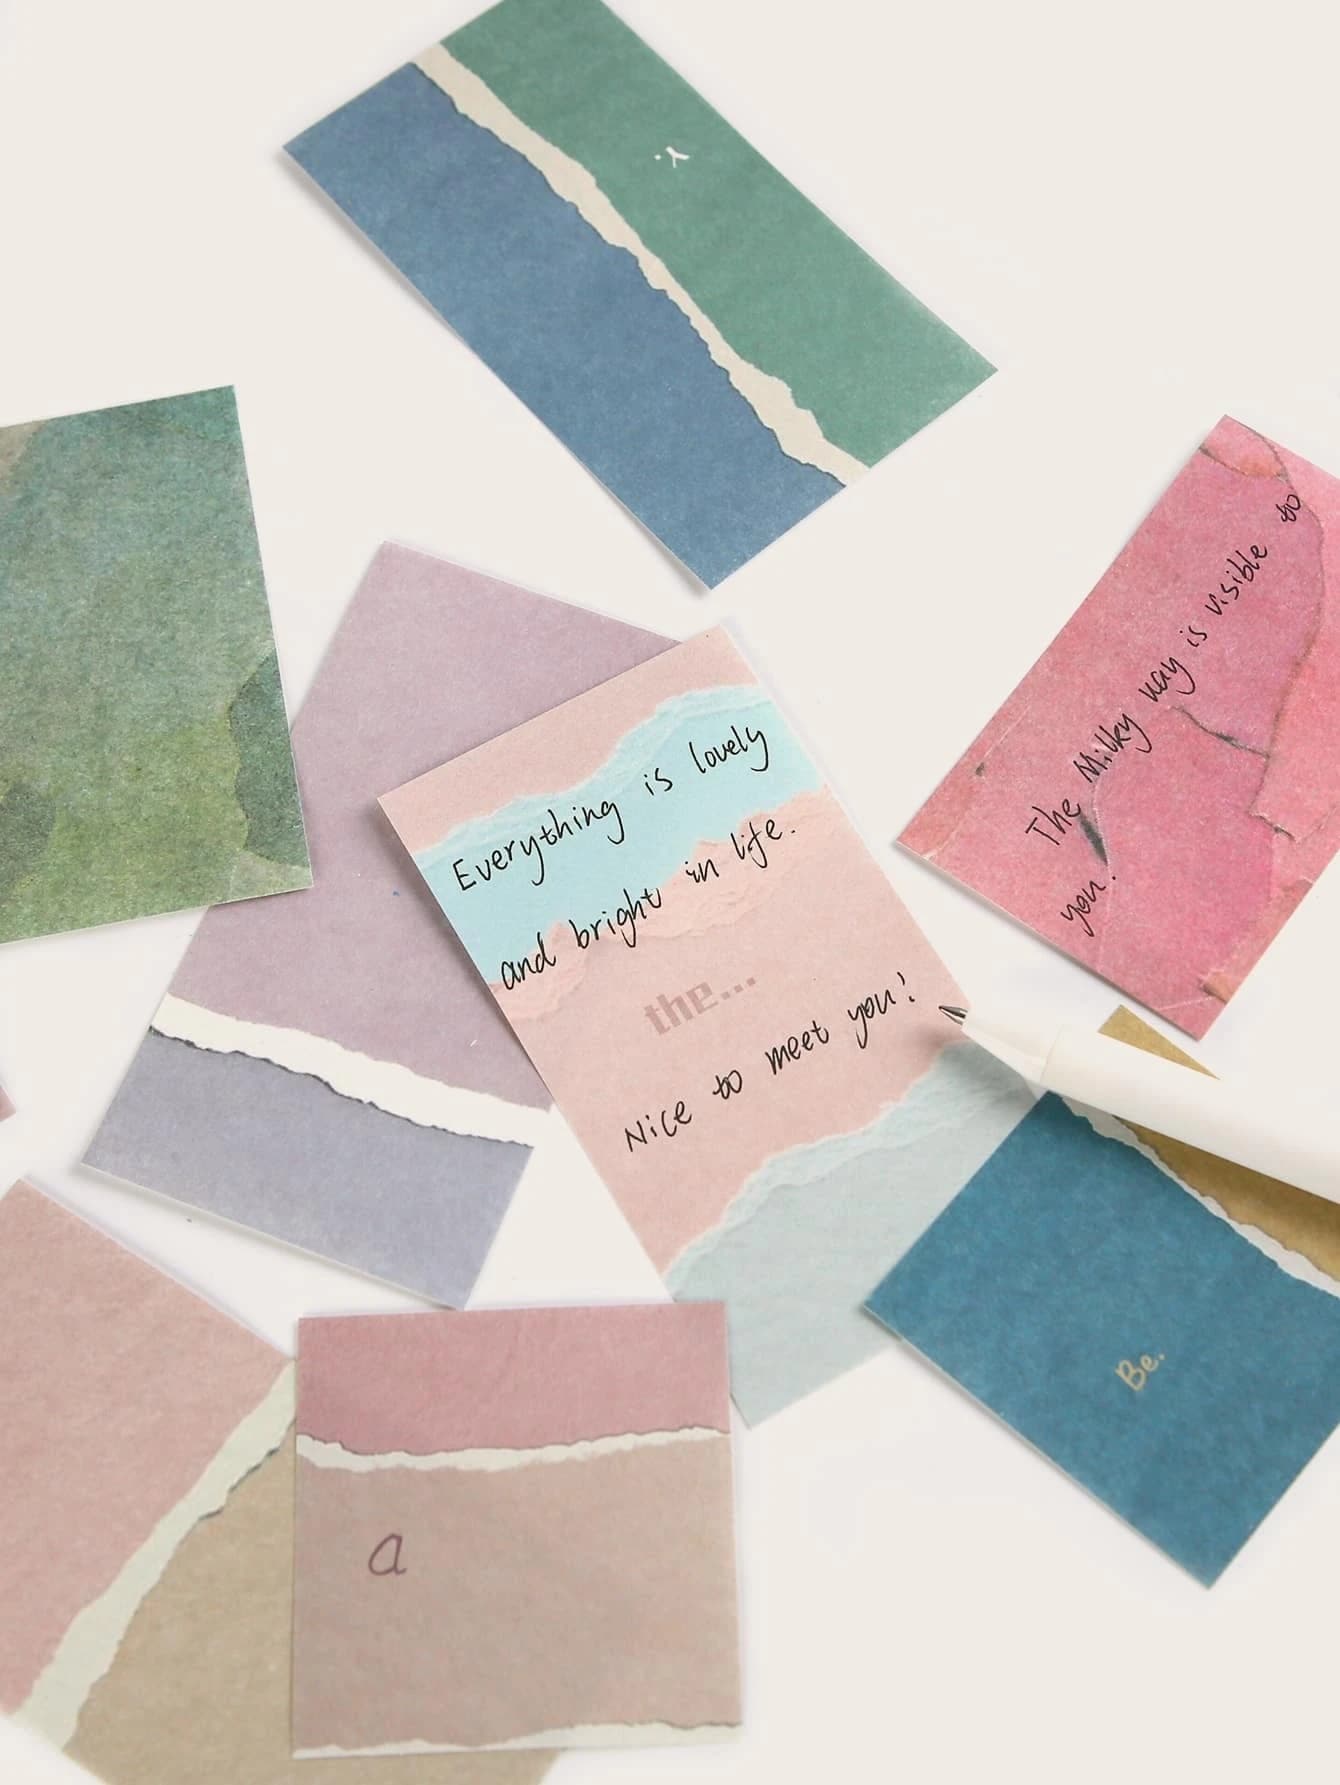 y.
The Milky way is visible to
you.
Everything is lovely
and bright in life.
the...
Nice to meet you!
Be.
a